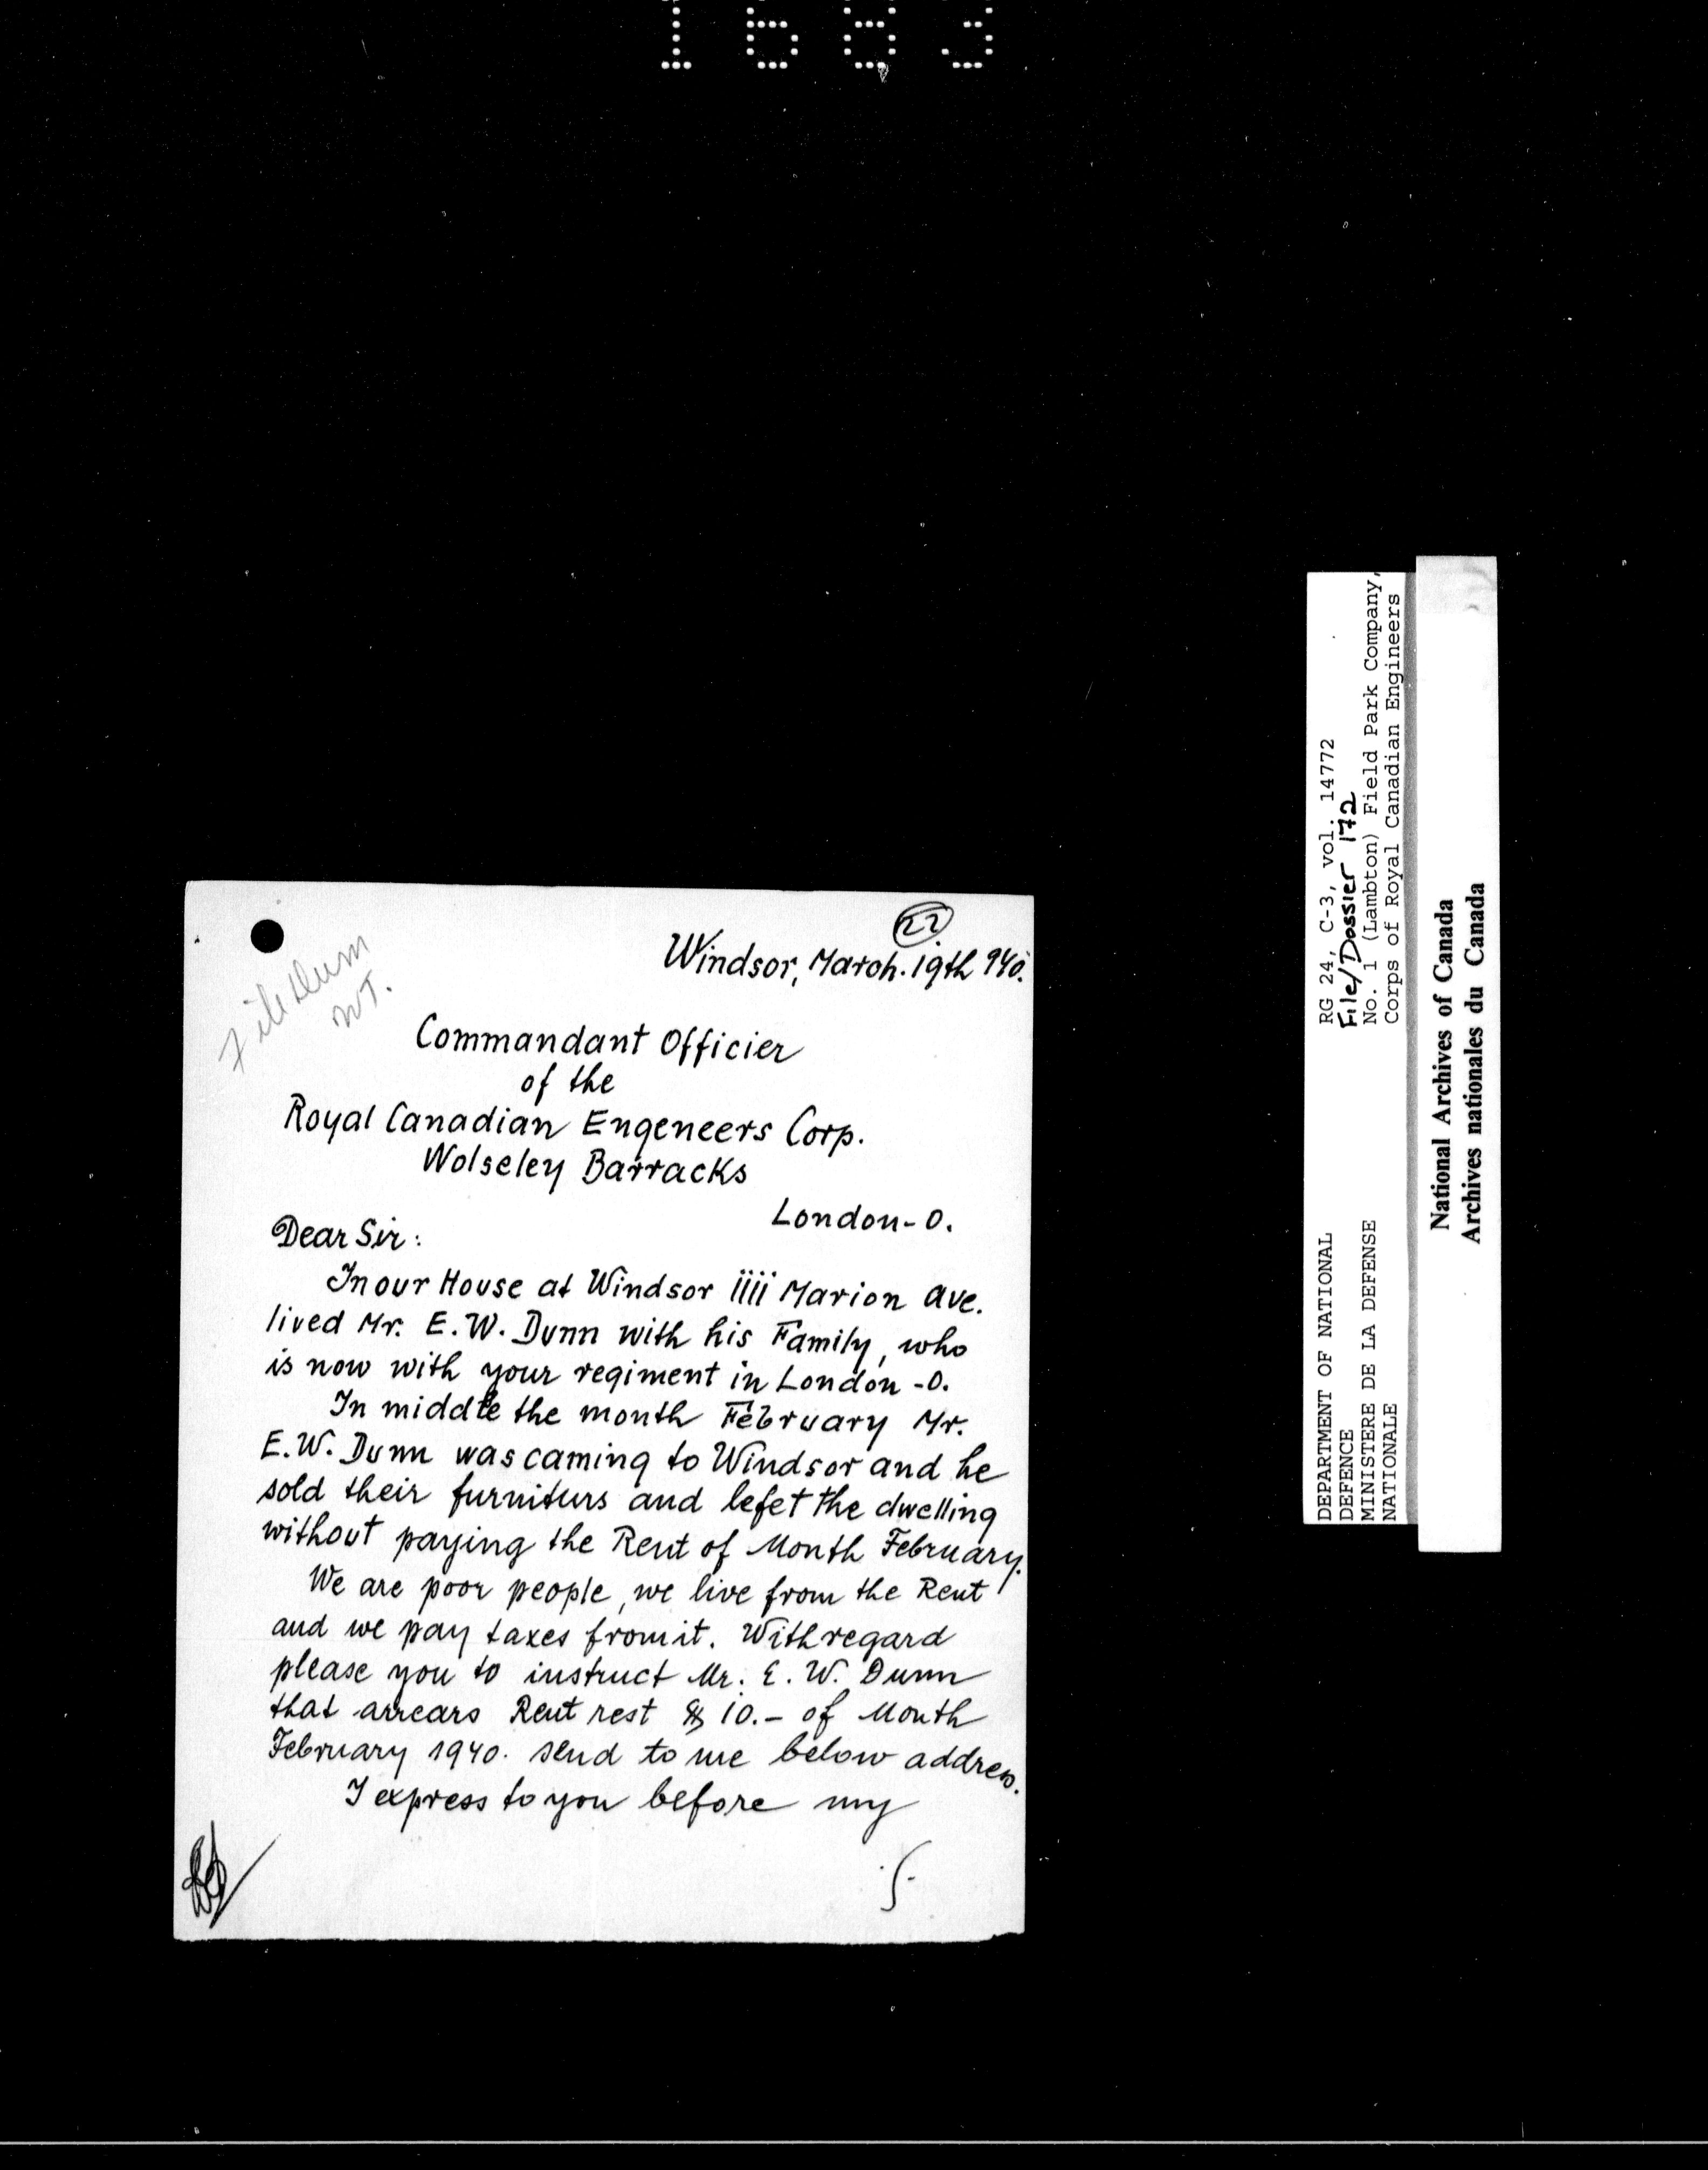 1683
22
Windsor, March. 19th 940.
File Dunn
Commandant Officier
of the
Royal Canadian Engeneers Corp.
Wolseley Barracks
London-O.
Dear Sir:
In our House at Windsor 1111 Marion Ave.
lived Mr. E.W. Dunn with his Family, who
is now with your regiment in London-O.
In middle the month February Mr.
E.W. Dunn was caming to Windsor and he
sold their furniturs and lefet the dwelling
without paying the Rent of Month February.
We are poor people, we live from the Rent
and we pay taxes from it. With regard
please you to instruct Mr. E. W. Dunn
that arrears Rent rest $ 10.- of Month
February 1940. send to me below address.
I express to you before my
RG 24, C-3, vol. 14772
File/Dossier 172
No. 1 (Lambton) Field Park Company,
Corps of Royal Canadian Engineers
DEPARTMENT OF NATIONAL
DEFENCE
MINISTERE DE LA DEFENSE
NATIONALE
National Archives of Canada
Archives nationales du Canada